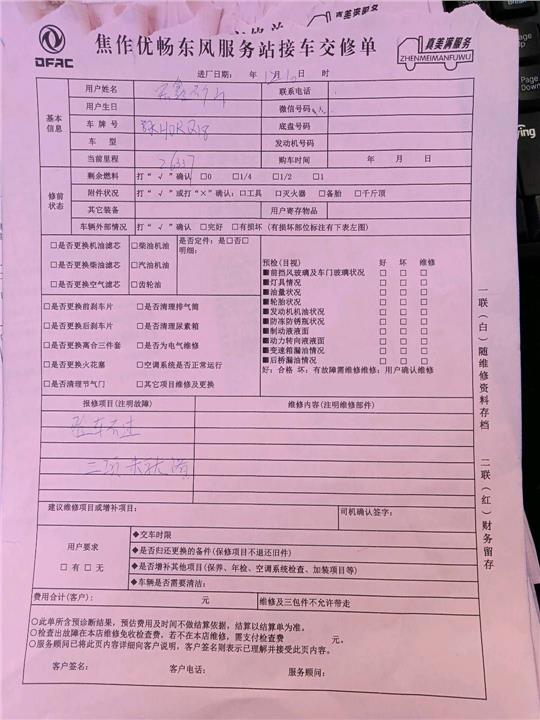 DFAC
焦作优畅东风服务站接车交修单
真美满服务
ZHENMEIMANFUWU
进厂日期： 年 12月 日 时
基本信息
用户姓名 联系电话
用户生日 微信号码
车牌号 底盘号码
车 型 发动机号码
当前里程 26337 购车时间 年 月 日
修前状态
剩余燃料 打“√”确认 □0 □1/4 □1/2 □1
附件状况 打“√”或打“×”确认：□工具 □灭火器 □备胎 □千斤顶
其它装备 用户寄存物品
车辆外部情况 打“√”确认 □完好 □有损坏（有损坏部位标注有下表左图）
□是否更换机油滤芯 □柴油机油
□是否更换柴油滤芯 □汽油机油
□是否更换空气滤芯 □齿轮油
是否定件：是□否□
明细：
□是否更换前刹车片 □是否清理排气筒
□是否更换后刹车片 □是否清理尿素箱
□是否更换离合三件套 □是否为电气维修
□是否更换火花塞 □空调系统是否正常运行
□是否清理节气门 □其它项目维修及更换
预检(目视) 好 坏 维修
■前挡风玻璃及车门玻璃状况 □ □ □
■灯具情况 □ □ □
■油量状况 □ □ □
■轮胎状况 □ □ □
■发动机机油状况 □ □ □
■防冻防锈瓶状况 □ □ □
■制动液液面 □ □ □
■动力转向液液面 □ □ □
■变速箱漏油情况 □ □ □
■后桥漏油情况 □ □ □
好：合格 坏：有故障需维修维修：用户确认维修
报修项目(注明故障) 维修内容(注明维修部件)
验车不过
三项未就绪
建议维修项目或增补项目： 司机确认签字：
用户要求
□有 □无
◆交车时限
◆是否归还更换的备件(保修项目不退还旧件)
◆是否增补其他项目(保养、年检、空调系统检查、加装项目等)
◆车辆是否需要清洁：
费用合计(客户)： 元 维修及三包件不允许带走
○此单所含预诊断结果，预估费用及时间不做结算依据，结算以结算单为准。
○检查出故障在本店维修免收检查费，若不在本店维修，需支付检查费 元。
○服务顾问已将此页内容详细向客户说明，客户签名则表示已理解并接受此页内容。
客户签名： 客户电话： 服务顾问：
一联（白）随维修资料存档 二联（红）财务留存
Page Up
Page Down